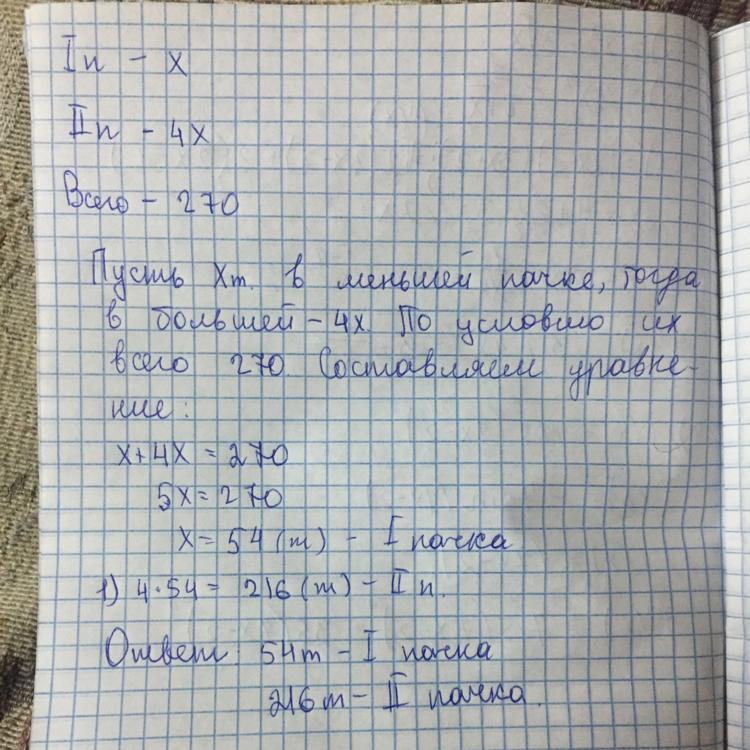 I п - x
II п - 4x
Всего - 270
Пусть x т. в меньшей пачке, тогда
в большей - 4x. По условию их
всего 270. Составляем уравне-
ние:
x + 4x = 270
5x = 270
x = 54 (т) - I пачка
1) 4·54 = 216 (т) - II п.
Ответ: 54 т - I пачка
216 т - II пачка.